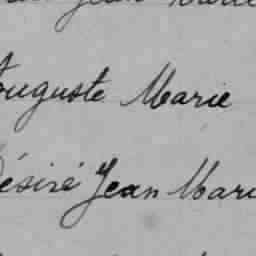 Jean
Auguste Marie
Désiré Jean Mari